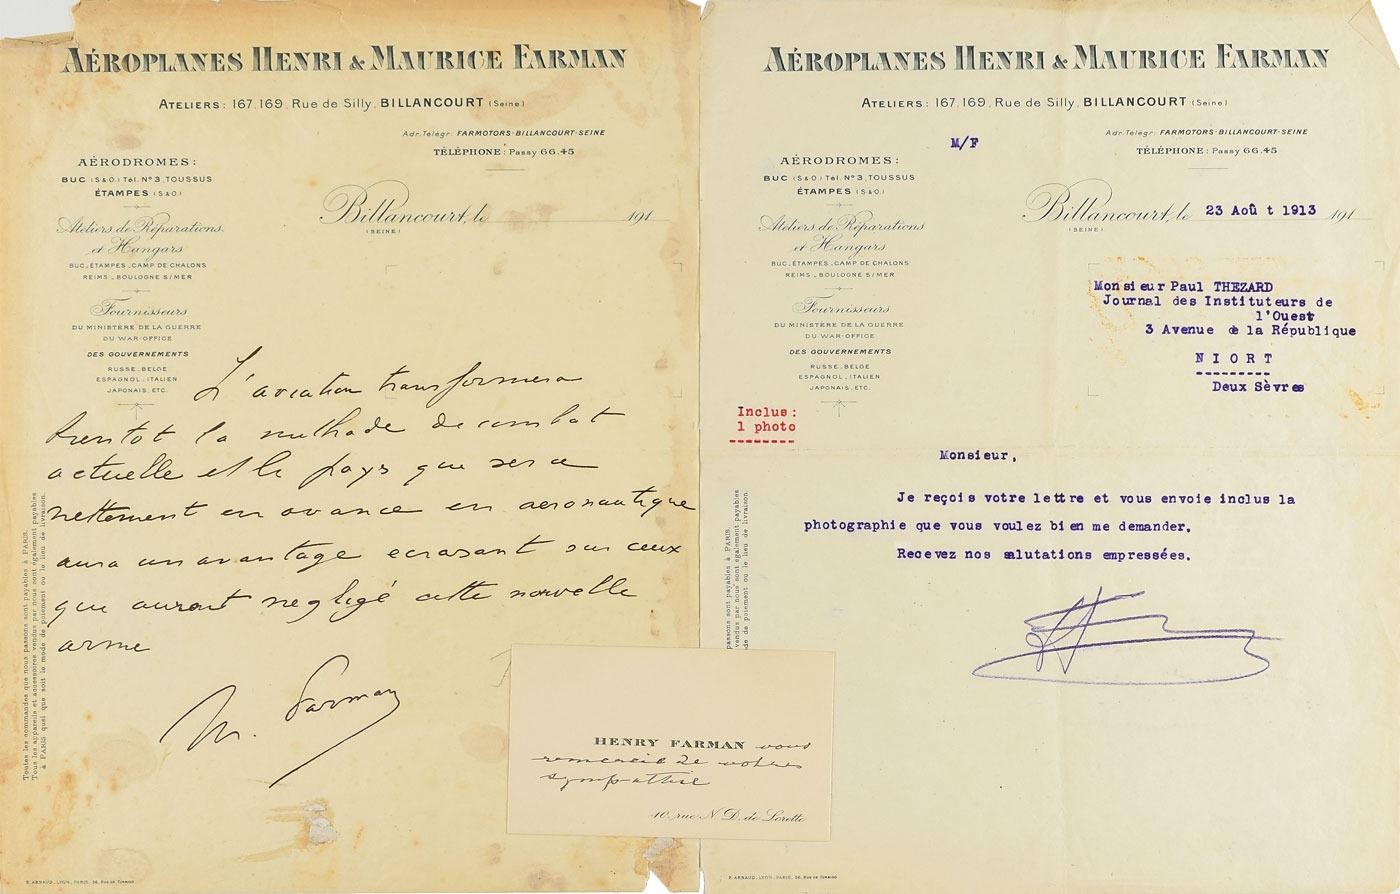 AÉROPLANES HENRI & MAURICE FARMAN
ATELIERS : 167.169, Rue de Silly, BILLANCOURT (Seine)
Adr. Télégr: FARMOTORS-BILLANCOURT-SEINE
TÉLÉPHONE : Passy 66.45
AÉRODROMES :
BUC (S&O.) Tél. N° 3, TOUSSUS
ÉTAMPES (S&O.)
Ateliers de Réparations
et Hangars
BUC_ÉTAMPES_CAMP DE CHALONS
REIMS_BOULOGNE S/MER
Fournisseurs
DU MINISTÈRE DE LA GUERRE
DU WAR-OFFICE
DES GOUVERNEMENTS
RUSSE_BELGE
ESPAGNOL_ITALIEN
JAPONAIS, ETC.
Billancourt, le 191
(SEINE)
L'aviation transformera
bientot la methode de combat
actuelle et le pays que sera
nettement en avance en aeronautique
aura un avantage ecrasant sur ceux
que auront negligé cette nouvelle
arme
M. Farman
Toutes les commandes que nous passons sont payables à PARIS.
Tous les appareils et accessoires vendus par nous sont également payables
à PARIS quel que soit le mode de paiement ou le lieu de livraison.
E. ARNAUD_LYON_PARIS, 26, RUE DE TURBIGO
AÉROPLANES HENRI & MAURICE FARMAN
ATELIERS : 167.169, Rue de Silly, BILLANCOURT (Seine)
Adr. Télégr: FARMOTORS-BILLANCOURT-SEINE
TÉLÉPHONE : Passy 66.45
M/F
AÉRODROMES :
BUC (S&O.) Tél. N° 3, TOUSSUS
ÉTAMPES (S&O.)
Ateliers de Réparations
et Hangars
BUC_ÉTAMPES_CAMP DE CHALONS
REIMS_BOULOGNE S/MER
Fournisseurs
DU MINISTÈRE DE LA GUERRE
DU WAR-OFFICE
DES GOUVERNEMENTS
RUSSE_BELGE
ESPAGNOL_ITALIEN
JAPONAIS, ETC.
Billancourt, le 23 Aoû t 1913 191
(SEINE)
Monsieur Paul THEZARD
Journal des Instituteurs de
l'Ouest
3 Avenue de la République
NIORT
Deux Sèvres
Inclus :
1 photo
Monsieur,
Je reçois votre lettre et vous envoie inclus la
photographie que vous voulez bien me demander.
Recevez nos salutations empressées.
passons sont payables à PARIS.
vendus par nous sont également payables
de de paiement ou le lieu de livraison.
E. ARNAUD_LYON_PARIS, 26, RUE DE TURBIGO
HENRY FARMAN vous
remercie de votre
sympathie
10, rue N. D. de Lorette